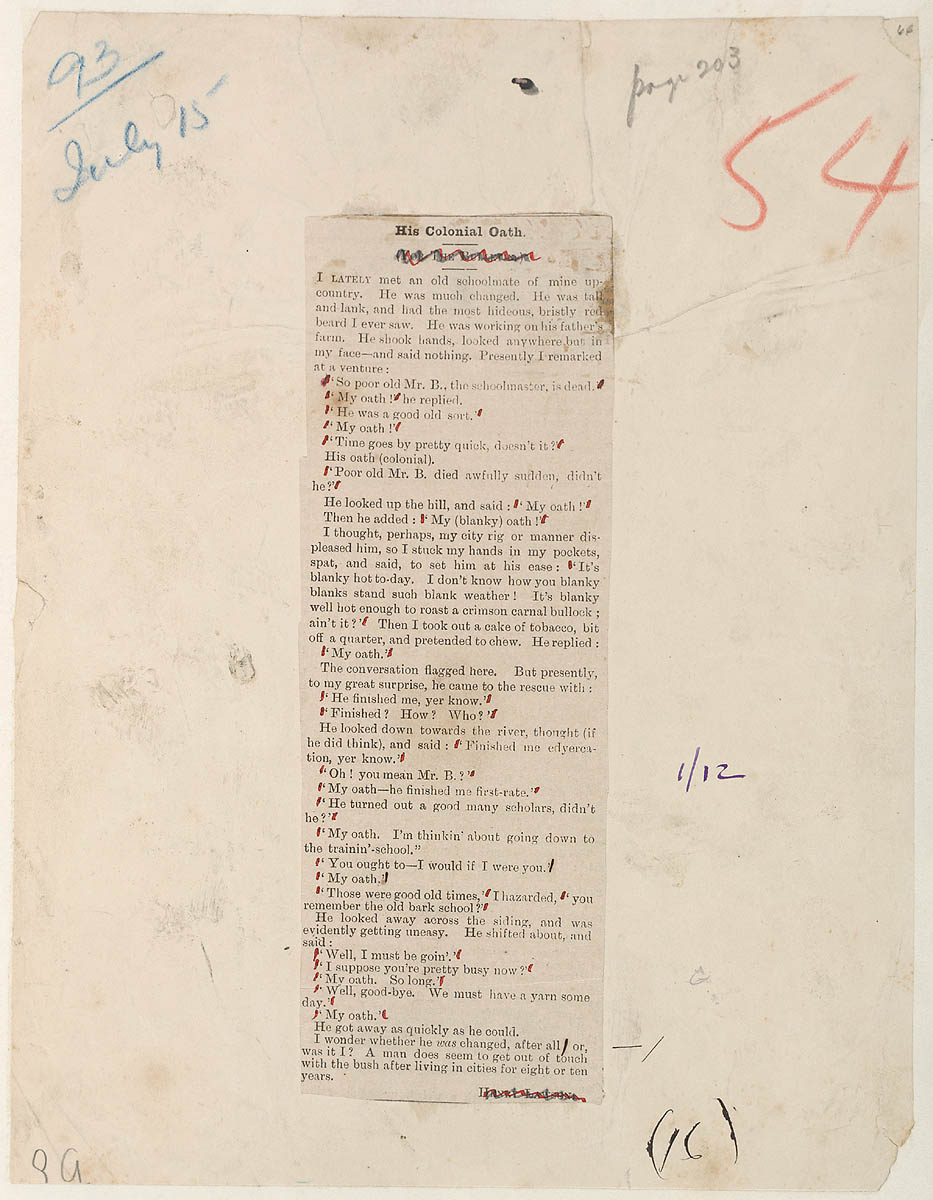 93
July 15
page 203
54
His Colonial Oath.
I LATELY met an old schoolmate of mine up-
country. He was much changed. He was tall
and lank, and had the most hideous, bristly red
beard I ever saw. He was working on his father's
farm. He shook hands, looked anywhere but in
my face—and said nothing. Presently I remarked
at a venture:
"So poor old Mr. B., the schoolmaster, is dead."
"My oath!" he replied.
"He was a good old sort."
"My oath!"
"Time goes by pretty quick, doesn't it?"
His oath (colonial).
"Poor old Mr. B. died awfully sudden, didn't
he?"
He looked up the hill, and said: "My oath!"
Then he added: "My (blanky) oath!"
I thought, perhaps, my city rig or manner dis-
pleased him, so I stuck my hands in my pockets,
spat, and said, to set him at his ease: "It's
blanky hot to-day. I don't know how you blanky
blanks stand such blank weather! It's blanky
well hot enough to roast a crimson carnal bullock;
ain't it?" Then I took out a cake of tobacco, bit
off a quarter, and pretended to chew. He replied:
"My oath."
The conversation flagged here. But presently,
to my great surprise, he came to the rescue with:
"He finished me, yer know."
"Finished? How? Who?"
He looked down towards the river, thought (if
he did think), and said: "Finished me edyerca-
tion, yer know."
"Oh! you mean Mr. B.?"
"My oath—he finished me first-rate."
"He turned out a good many scholars, didn't
he?"
"My oath. I'm thinkin' about going down to
the trainin'-school."
"You ought to—I would if I were you."
"My oath."
"Those were good old times," I hazarded, "you
remember the old bark school?"
He looked away across the siding, and was
evidently getting uneasy. He shifted about, and
said:
"Well, I must be goin'."
"I suppose you're pretty busy now?"
"My oath. So long."
"Well, good-bye. We must have a yarn some
day."
"My oath."
He got away as quickly as he could.
I wonder whether he was changed, after all, or,
was it I? A man does seem to get out of touch
with the bush after living in cities for eight or ten
years.
1/12
(16)